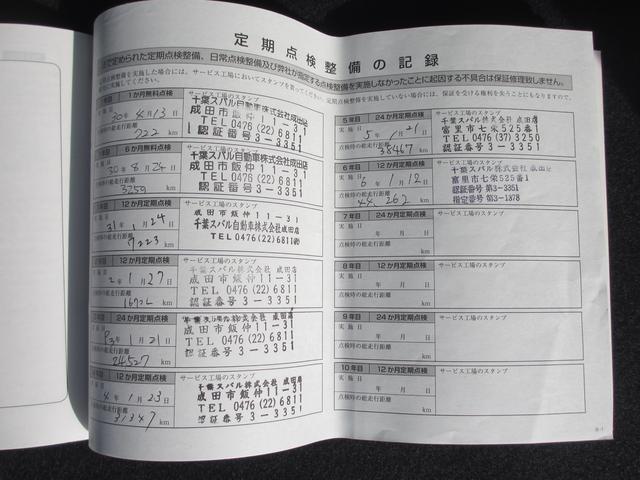 定期点検整備の記録
で定められた定期点検整備、日常点検整備及び弊社が指定する点検整備を実施しなかったことに起因する不具合は保証修理致しません。
整備を実施した場合には、サービス工場においてスタンプを貰ってください。定期点検整備を実施していない場合は、保証を受ける権利を失うこともなりますので、
実施してください。
1か月無料点検
サービス工場のスタンプ
30年4月13日
点検時の総走行距離
722 km
千葉スバル自動車株式会社成田店
成田市飯仲11-31
TEL 0476 (22) 6811
認証番号3-3351
6か月無料点検
サービス工場のスタンプ
30年8月24日
点検時の総走行距離
3259 km
千葉スバル自動車株式会社成田店
成田市飯仲11-31
TEL 0476 (22) 6811
認証番号3-3351
12か月定期点検
サービス工場のスタンプ
31年1月24日
点検時の総走行距離
9223 km
成田市飯仲11-31
千葉スバル自動車株式会社成田店
TEL 0476(22)6811㈹
12か月定期点検
サービス工場のスタンプ
2年1月27日
点検時の総走行距離
km
千葉スバル株式会社 成田店
成田市飯仲11-31
TEL 0476 (22) 6811
認証番号3-3351
12か月定期点検
サービス工場のスタンプ
3年1月21日
点検時の総走行距離
24527 km
千葉スバル株式会社 成田店
成田市飯仲11-31
TEL 0476 (22) 6811
認証番号3-3351
12か月定期点検
サービス工場のスタンプ
4年1月23日
点検時の総走行距離
31347 km
千葉スバル株式会社 成田店
成田市飯仲11-31
TEL 0476 (22) 6811
認証番号3-3351
5年目 24か月定期点検
サービス工場のスタンプ
実施日
5年1月21日
点検時の総走行距離
38467 km
千葉スバル株式会社 成田店
富里市七栄525番1
TEL 0476 (37) 3250
認証番号3-3351
6年目 12か月定期点検
サービス工場のスタンプ
実施日
6年1月12日
点検時の総走行距離
44262 km
千葉スバル株式会社 成田店
富里市七栄525番1
認証番号 第3-3351
指定番号 第3-1378
7年目 24か月定期点検
サービス工場のスタンプ
実施日
年 月 日
点検時の総走行距離
km
8年目 12か月定期点検
サービス工場のスタンプ
実施日
年 月 日
点検時の総走行距離
km
9年目 24か月定期点検
サービス工場のスタンプ
実施日
年 月 日
点検時の総走行距離
km
10年目 12か月定期点検
サービス工場のスタンプ
実施日
年 月 日
点検時の総走行距離
km